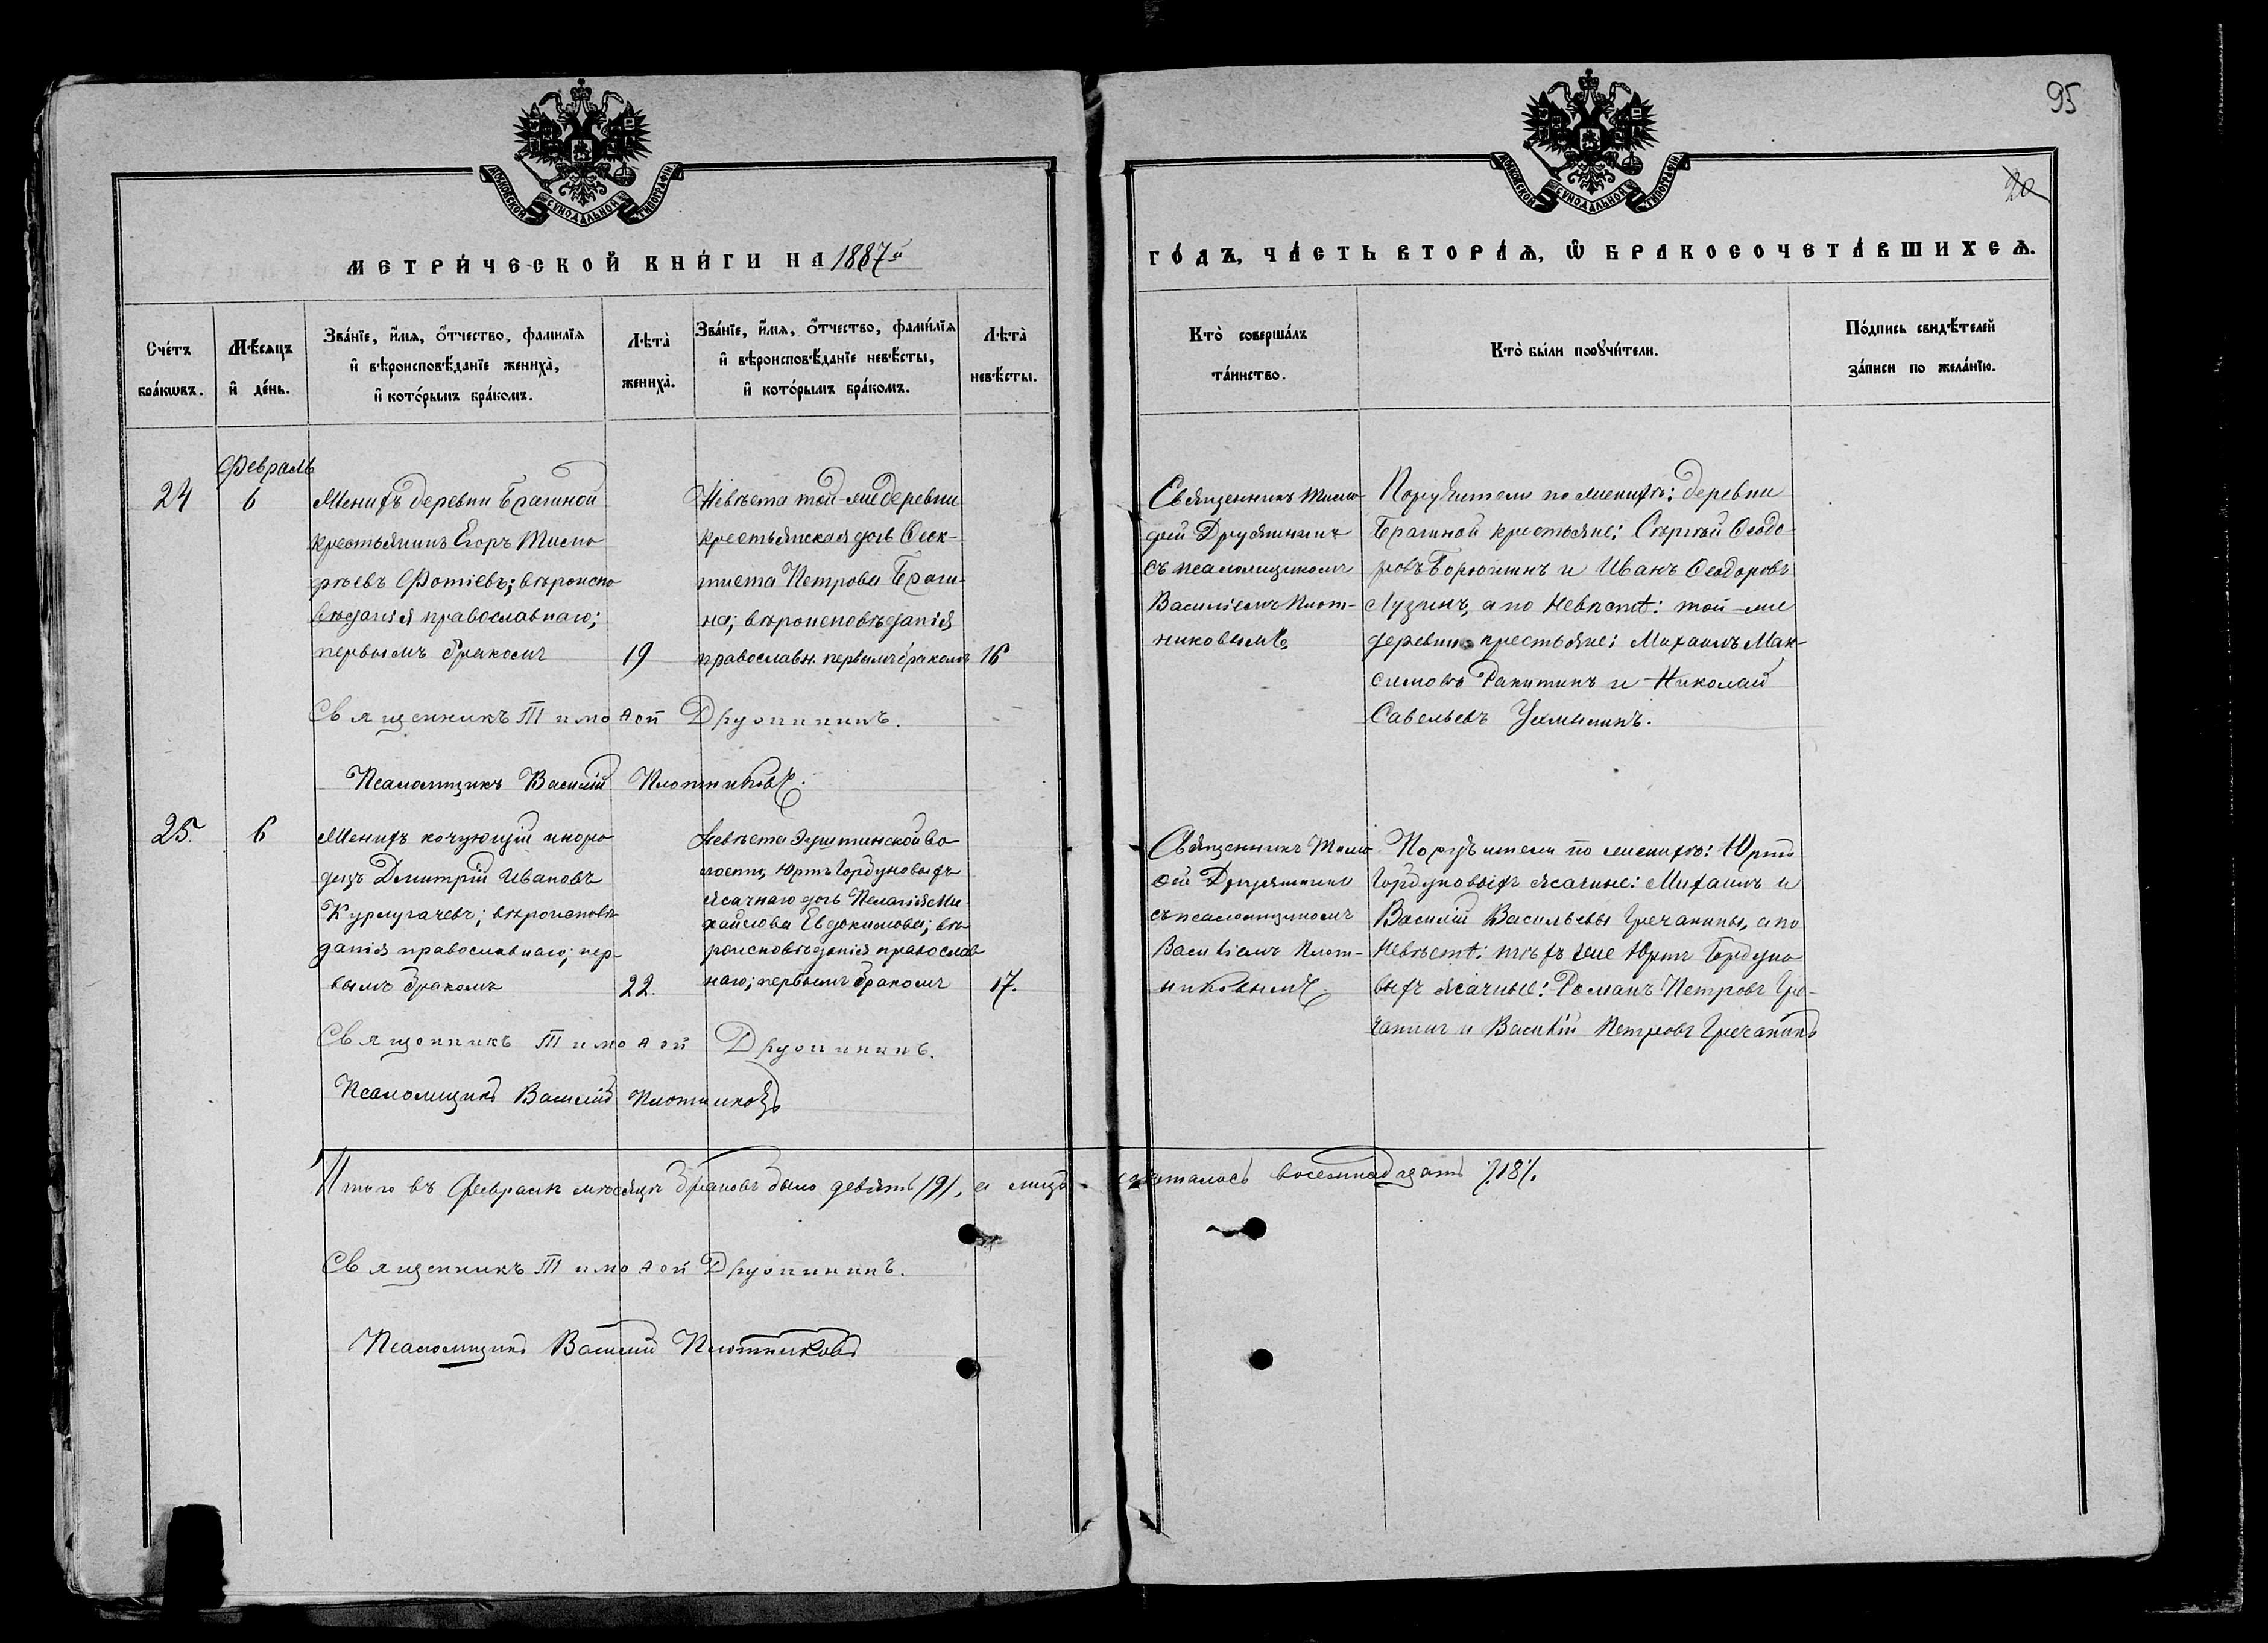 95
20
МОСКОВСКОЙ СѴНОДАЛЬНОЙ ТИПОГРАФІИ
МОСКОВСКОЙ СѴНОДАЛЬНОЙ ТИПОГРАФІИ
МЕТРИ́ЧЕСКОЙ КНИ́ГИ НА 1887й
ГО́ДЪ, ЧА́СТЬ ВТОРА́Ѧ, Ѽ БРАКОСОЧЕТА́ВШИХСѦ.
Сче́тъ бра́кѡвъ.
Мѣ́сяцъ и де́нь.
Зва́нїе, и́мѧ, о́тчество, фами́лїѧ и вѣроисповѣ́данїе жениха̀, и кото́рымъ бра́комъ.
Лѣта̀ жениха̀.
Зва́нїе, и́мѧ, о́тчество, фами́лїѧ и вѣроисповѣ́данїе невѣ́сты, и кото́рымъ бра́комъ.
Лѣта̀ невѣ́сты.
Кто̀ соверша́лъ та́инство.
Кто̀ бы́ли порꙋчи́тели.
По́дпись свидѣ́телей за́писи по жела́нїю.
Февраль
24
6
Женихъ деревни Брагиной
крестьянинъ Егоръ Тимо
феевъ Фотіевъ; вѣроиспо
вѣданія православнаго;
первымъ бракомъ
19
Невѣста той-же деревни
крестьянская дочь Феок-
тиста Петрова Браги-
на; вѣроисповѣданія
православн. первымъ бракомъ
16
Священникъ Тимо-
фей
съ псаломщикомъ
Василіемъ Плот-
никовымъ.
Поручители по женихѣ: деревни
Брагиной крестьяне: Сергѣй Ѳеодо-
ровъ и Иванъ Ѳеодоровъ
Лузинъ, а по невѣстѣ: той-же
деревни крестьяне: Михаилъ Мак-
симовъ Ракитинъ и Николай
Савельевъ
Священникъ Тимоѳей
Псаломщикъ Василій Плотниковъ.
25.
6
Женихъ кочующій иноро
децъ Дмитрій Ивановъ
Курлугачевъ; вѣроисповѣ
данія православнаго; пер-
вымъ бракомъ
22.
Невѣста Эуштинской во
лости, Юртъ Тордуновыхъ
ясачнаго дочь Пелагія Ми
хайлова Евдокимова; вѣ
роисповѣданія православ
наго; первымъ бракомъ
17.
Священникъ Тимо
ѳей
съ псаломщикомъ
Василіемъ Плот-
никовымъ.
Поручители по женихѣ: Юртъ
Тордуновыхъ ясачные: Михаилъ и
Василій Васильевы Гречанины, а по
невѣстѣ: тѣхъ же Юртъ Тордуно
выхъ ясачные: Романъ Петровъ Гре-
чанинъ и Василій Петровъ Гречанинъ
Священникъ Тимоѳей
Псаломщикъ Василій Плотниковъ
Итого въ Февралѣ мѣсяцѣ браковъ было девять /9/, а лицъ сочеталось восемнадцать /18/.
Священникъ Тимоѳей
Псаломщикъ Василій Плотниковъ